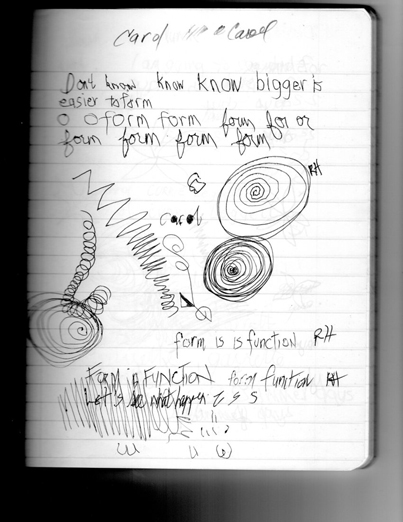 Carol Carol
Don't know know know bigger is
easier to form
o o form form form for or
form form form form
RH
carol
form is is function RH
Form in FUNCTION form function RH
Let's see what happen s s s